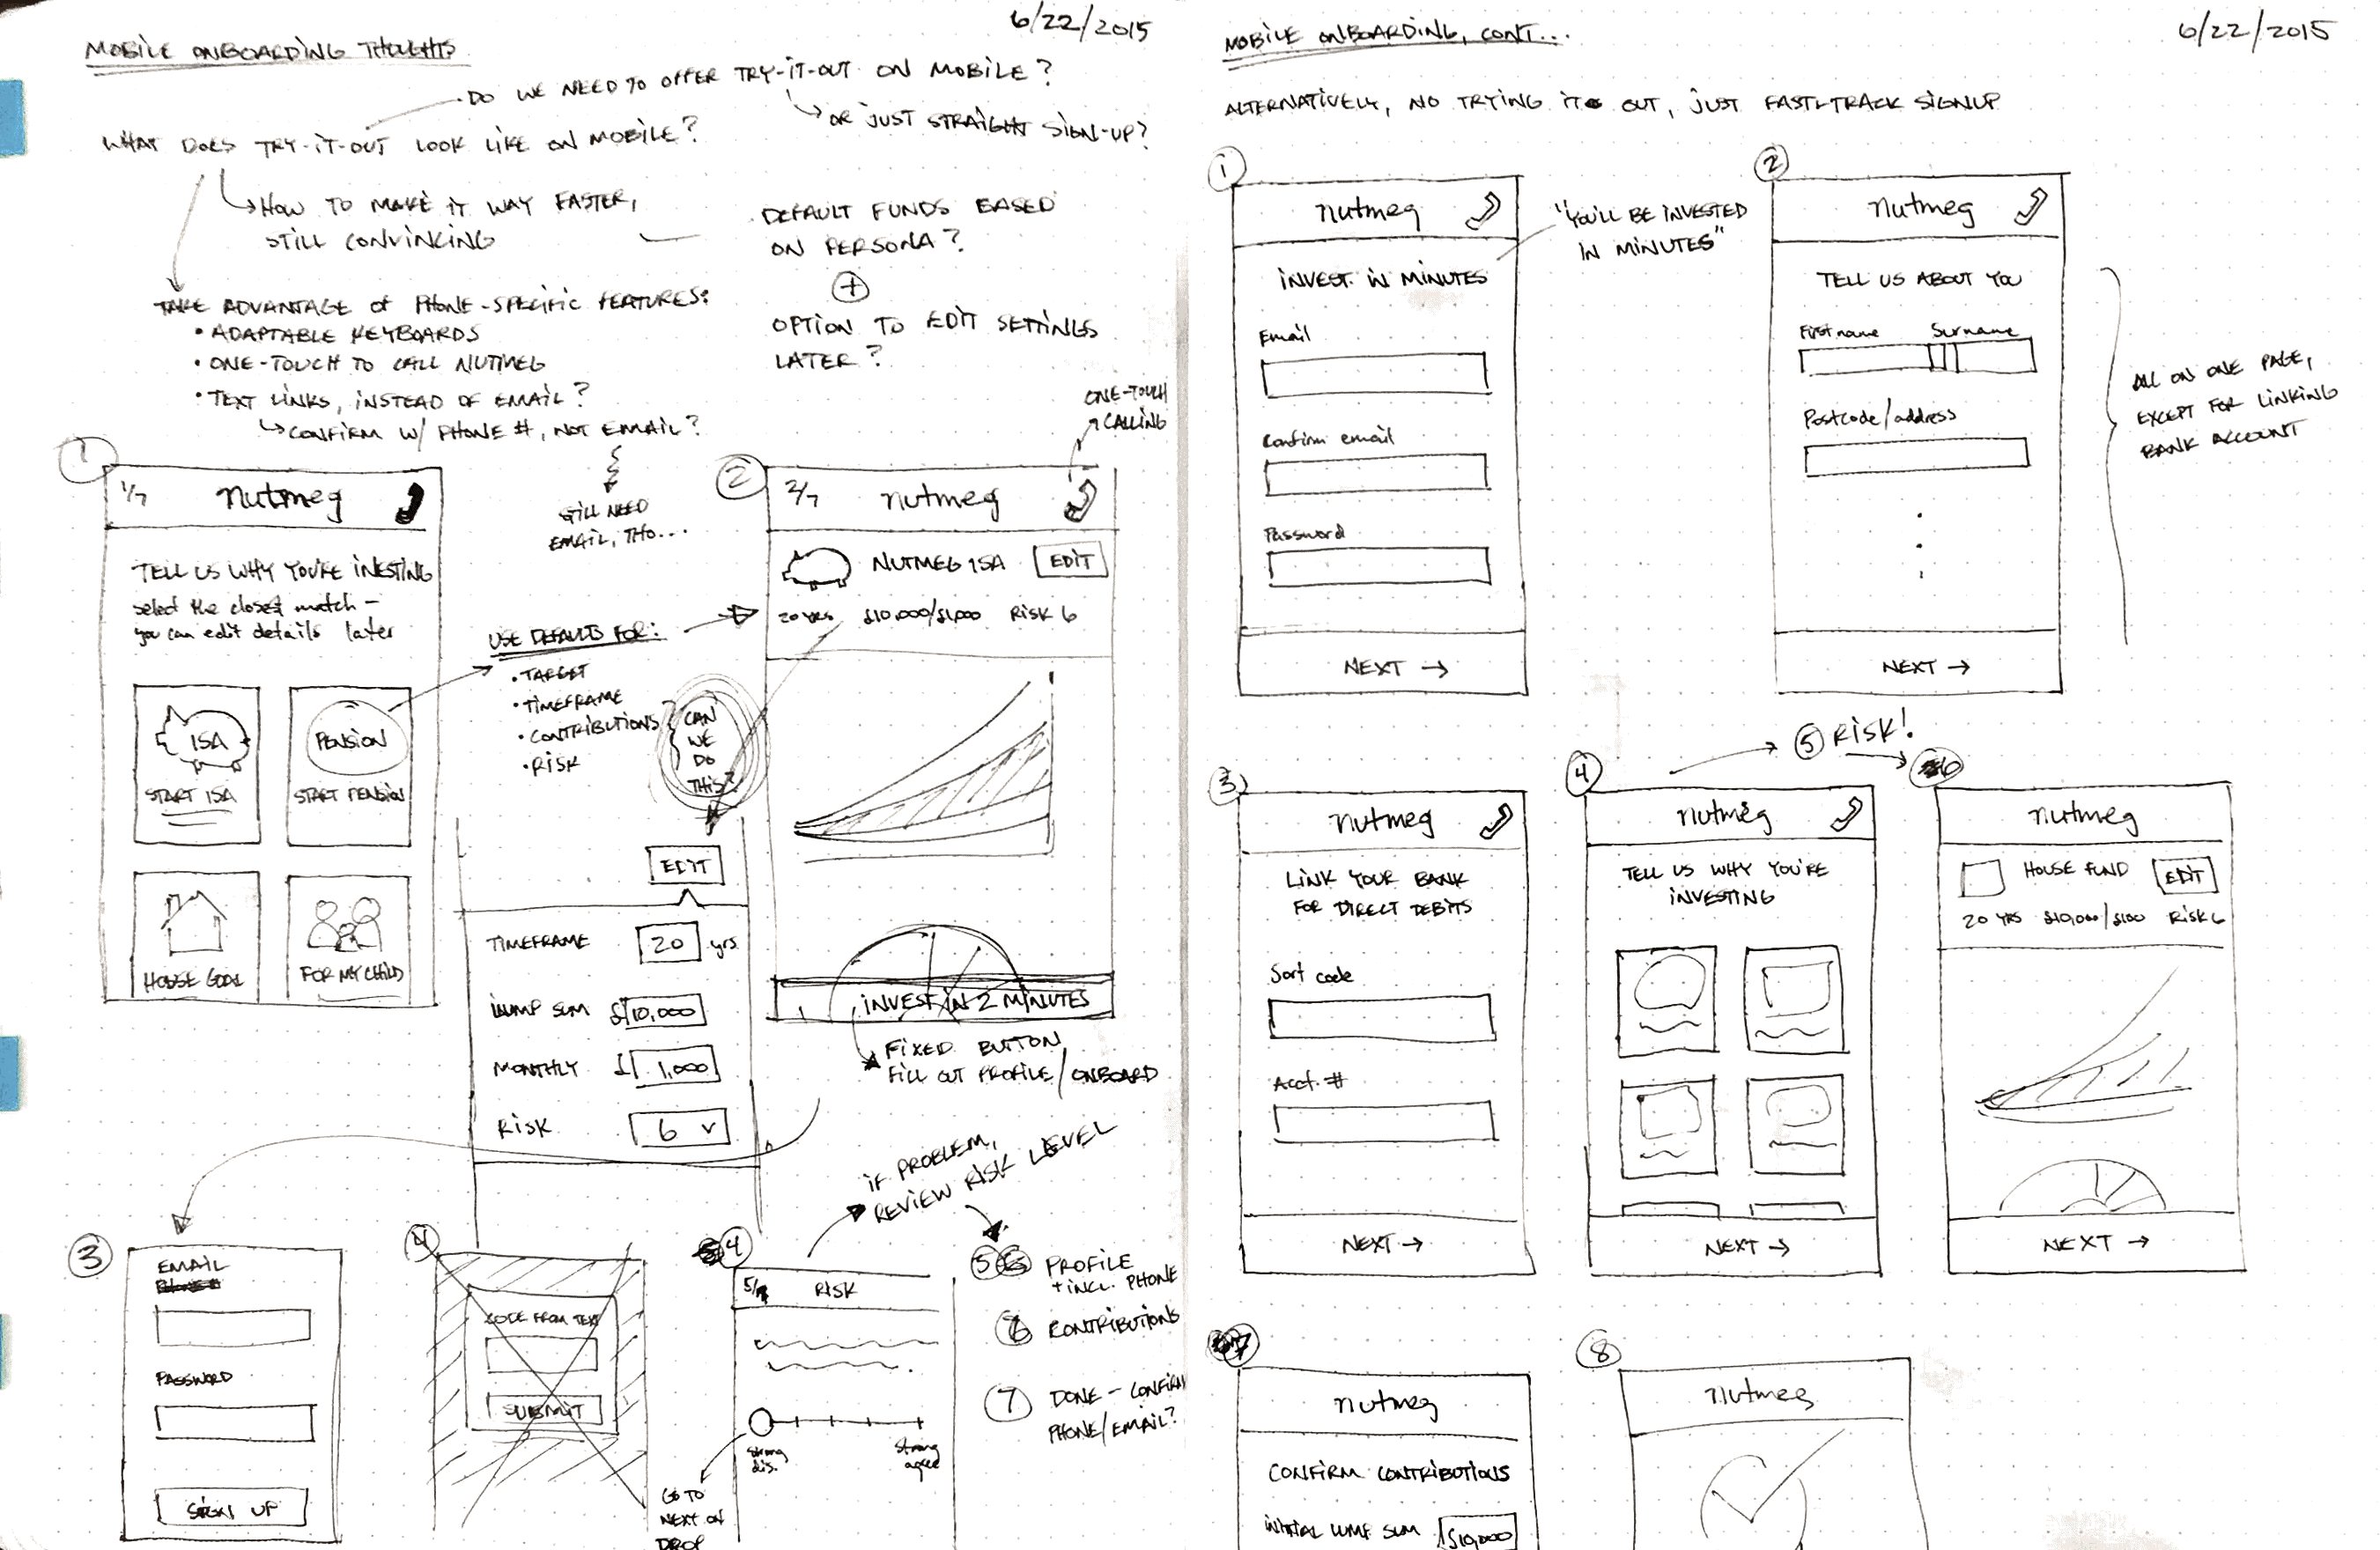 MOBILE ONBOARDING THOUGHTS
6/22/2015
DO WE NEED TO OFFER TRY-IT-OUT ON MOBILE?
OR JUST STRAIGHT SIGN-UP?
WHAT DOES TRY-IT-OUT LOOK LIKE ON MOBILE?
HOW TO MAKE IT WAY FASTER,
STILL CONVINCING
DEFAULT FUNDS BASED
ON PERSONA?
+
OPTION TO EDIT SETTINGS
LATER?
TAKE ADVANTAGE OF PHONE-SPECIFIC FEATURES:
• ADAPTABLE KEYBOARDS
• ONE-TOUCH TO CALL NUTMEG
• TEXT LINKS, INSTEAD OF EMAIL?
CONFIRM W/ PHONE #, NOT EMAIL?
STILL NEED
EMAIL, THO...
ONE-TOUCH
CALLING
1
1/7 nutmeg
TELL US WHY YOU'RE INESTING
select the closest match –
you can edit details later
ISA
START ISA
PENSION
START PENSION
HOUSE GOAL
FOR MY CHILD
USE DEFAULTS FOR:
• TARGET
• TIMEFRAME
• CONTRIBUTIONS
• RISK
CAN
WE
DO
THIS?
2
2/7 nutmeg
NUTMEG ISA EDIT
20 yrs £10,000/£1,000 RISK 6
INVEST IN 2 MINUTES
FIXED BUTTON
FILL OUT PROFILE/ONBOARD
EDIT
TIMEFRAME 20 yrs
LUMP SUM £10,000
MONTHLY £ 1,000
RISK 6
IF PROBLEM,
REVIEW RISK LEVEL
3
EMAIL
PASSWORD
SIGN UP
4
CODE FROM TEXT
SUBMIT
4
5/7 RISK
Strong
dis.
Strong
agree
GO TO
NEXT ON
DROP
5 PROFILE
+ INCL. PHONE
6 CONTRIBUTIONS
7 DONE – CONFIRM
PHONE/EMAIL?
MOBILE ONBOARDING, CONT...
6/22/2015
ALTERNATIVELY, NO TRYING IT OUT, JUST FAST-TRACK SIGNUP
1
nutmeg
INVEST IN MINUTES
Email
Confirm email
Password
NEXT →
"YOU'LL BE INVESTED
IN MINUTES"
2
nutmeg
TELL US ABOUT YOU
First name Surname
Postcode/address
NEXT →
ALL ON ONE PAGE,
EXCEPT FOR LINKING
BANK ACCOUNT
3
nutmeg
LINK YOUR BANK
FOR DIRECT DEBITS
Sort code
Acct. #
NEXT →
4
nutmeg
TELL US WHY YOU'RE
INVESTING
NEXT →
5 RISK!
6
nutmeg
HOUSE FUND EDIT
20 YRS £10,000/£100 RISK 6
NEXT →
7
nutmeg
CONFIRM CONTRIBUTIONS
INITIAL LUMP SUM £10,000
8
nutmeg